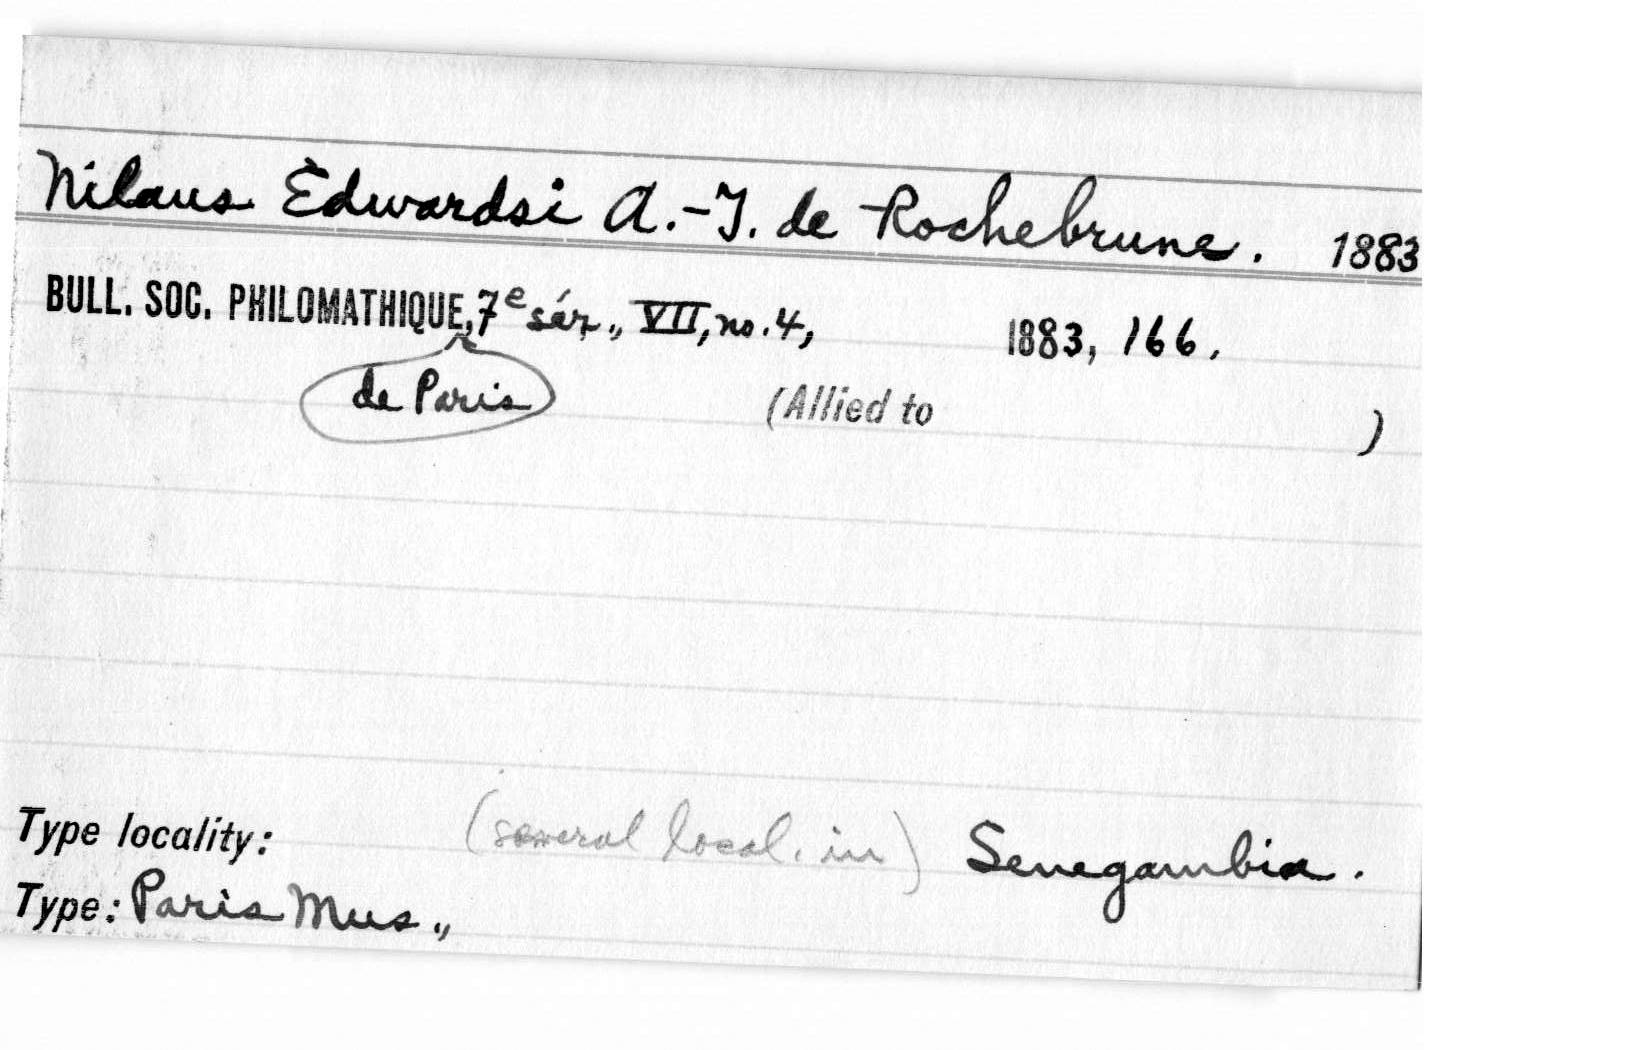 Nilaus Èdwardsi A.-T. de Rochebrune. 1883
BULL. SOC. PHILOMATHIQUE, 7e sér., VII, no. 4, 1883, 166.
de Paris
(Allied to )
Type locality: (several local. in) Senegambia.
Type: Paris Mus.,